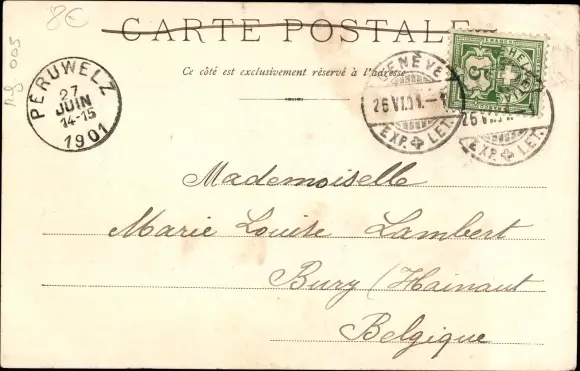 8€
CARTE POSTALE
Ce côté est exclusivement réservé à l'adresse
PÉRUWELZ
27
JUIN
14-15
1901
GENÈVE
26 VI.01.–
EXP. LET.
26 VI.01.
EXP. LET.
HELVETIA
5
Mademoiselle
Marie Louise Lambert
Bury (Hainaut
Belgique